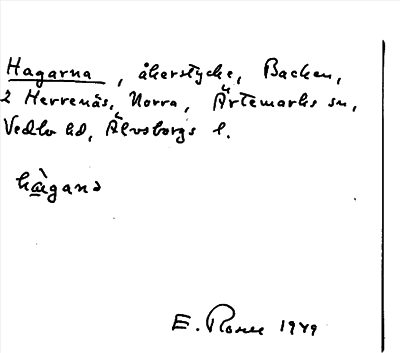 Hagarna, åkerstycke, Backen,
2 Herrenäs, Norra, Ärtemarks sn,
Vedbo hd, Älvsborgs l.
hàgana
E. Rosell 1949